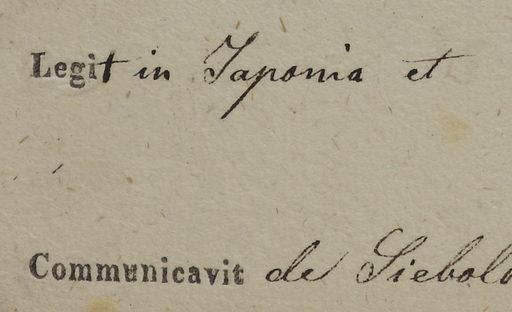 Legit in Japonia et
Communicavit de Siebold